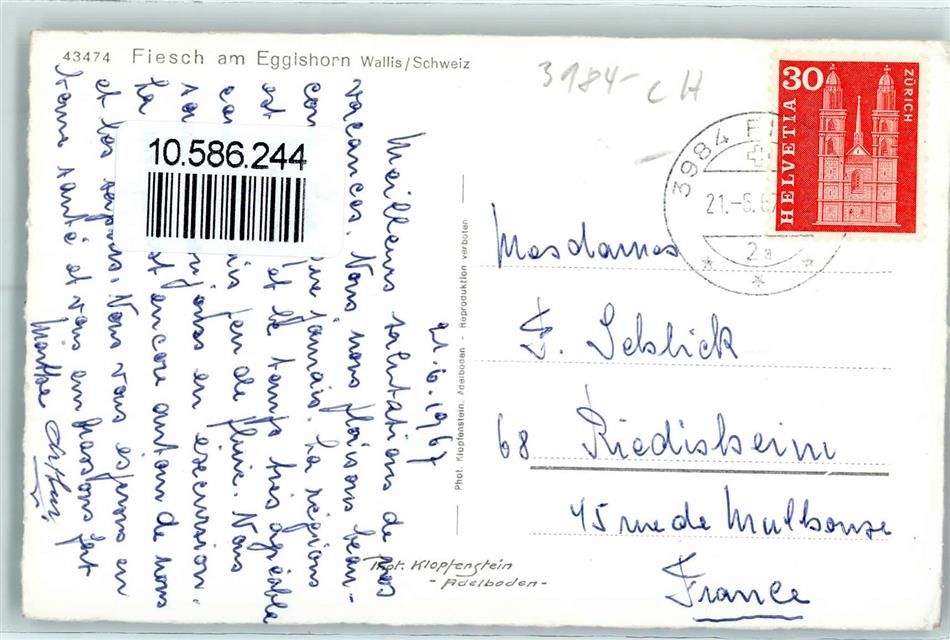 43474 Fiesch am Eggishorn Wallis/Schweiz
3984 CH
30
HELVETIA
ZÜRICH
3984
21.-6.67
2a
10.586.244
21.6.1967
Meilleures salutations de nos
vacances. Nous nous plaisons beau-
comme jamais. La régions
est et le temps très agréable
peu de pluie. Nous
en excursion.
la encore autour de nous
et les sapins. Nous vous espérons en
bonne santé et vous embrassons fort
Marthe Arthur
Phot. Klopfenstein, Adelboden - Reproduktion verboten
Phot. Klopfenstein
- Adelboden -
Mesdames
F. Seblick
68 Riedisheim
45 rue de Mulhouse
France